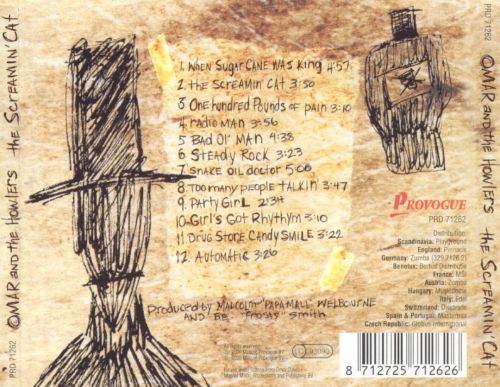 OMAR AND THE HOWLERS the SCREAMIN' CAT
PRD 71262
1. WHEN SUGAR CANE WAS KING 4:57
2. the SCREAMIN' CAT 3:50
3 One hundred Pounds of pain 3:10
4. RADIO MAN 3:56
5. BAD OL' MAN 4:38
6. STEADY ROCK 3:23
7. SNAKE OIL DOCTOR 5:00
8. TOO MANY PEOPLE TALKIN' 3:47
9. PARTY GIRL 2:34
10. GIRL'S GOT RHYTHM 3:10
11. DRUG STORE CANDY SMILE 3:22
12. AUTOMATIC 3:26
Produced by MALCOLM "PAPA MALI" WELBOURNE
AND BE "FROSTY" SMITH
PROVOGUE
PRD 71262
Distribution
Scandinavia: Playground
England: Pinnacle
Germany: Zomba
Benelux:
France: MSI
Austria: Zomba
Hungary:
Italy: Edel
Switzerland:
Spain & Portugal:
Czech Republic: Globus International
8 712725 712626
PRD 71262
OMAR AND THE HOWLERS the SCREAMIN' CAT